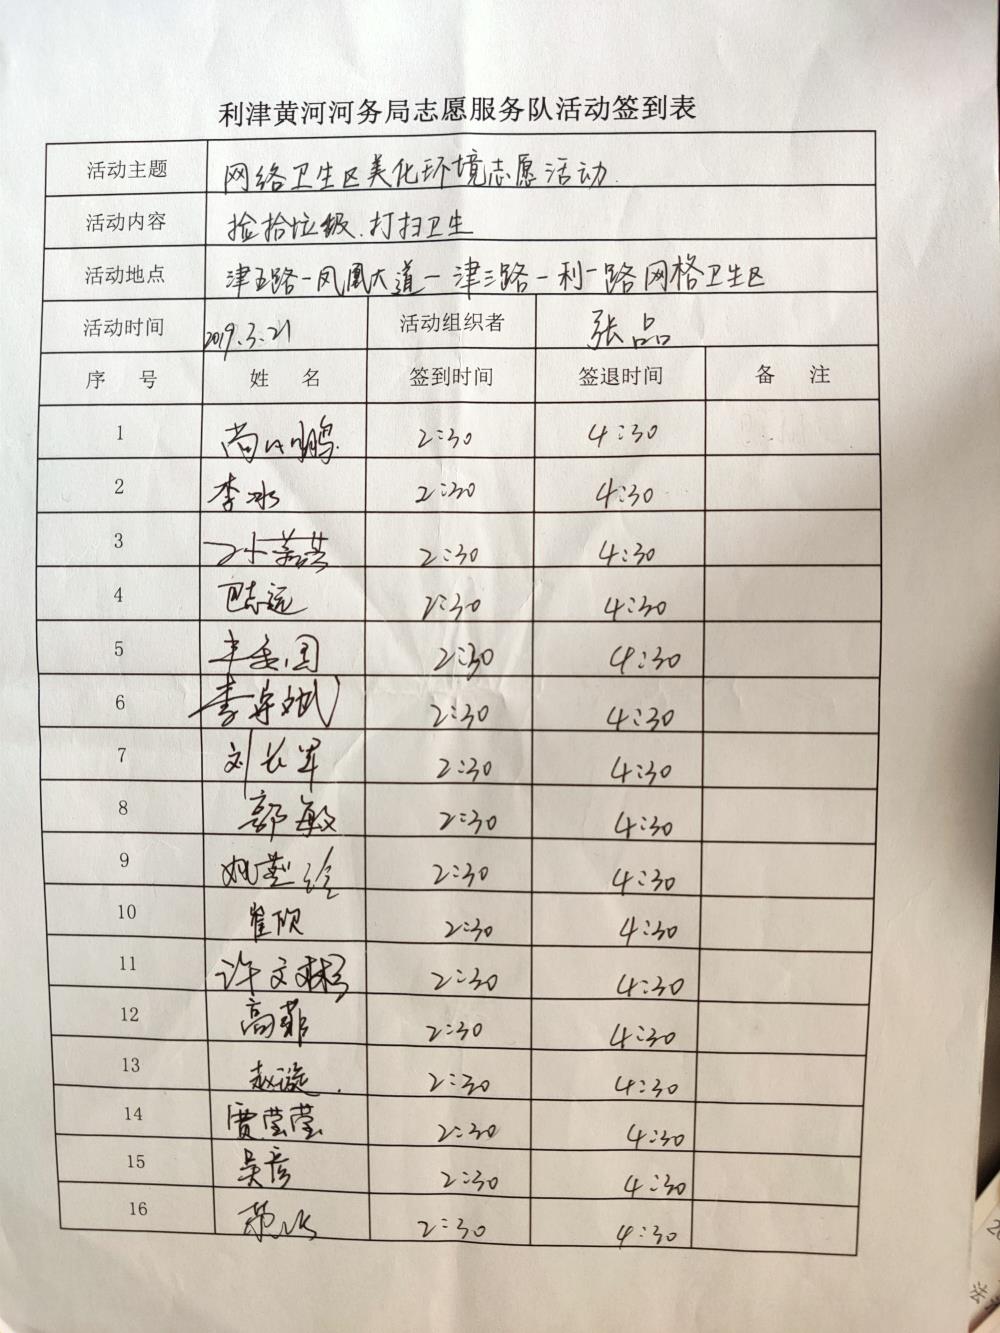 利津黄河河务局志愿服务队活动签到表
活动主题 网络卫生区美化环境志愿活动.
活动内容 捡拾垃圾.打扫卫生
活动地点 津五路-凤凰大道-津三路-利一路网格卫生区
活动时间 2019.3.21 活动组织者 张品
序 号 姓 名 签到时间 签退时间 备 注
1 2:30 4:30
2 李冰 2:30 4:30
3 2:30 4:30
4 巴志远 2:30 4:30
5 2:30 4:30
6 2:30 4:30
7 刘长军 2:30 4:30
8 郭敏 2:30 4:30
9 2:30 4:30
10 崔欣 2:30 4:30
11 2:30 4:30
12 高菲 2:30 4:30
13 2:30 4:30
14 贾莹莹 2:30 4:30
15 吴彦 2:30 4:30
16 2:30 4:30